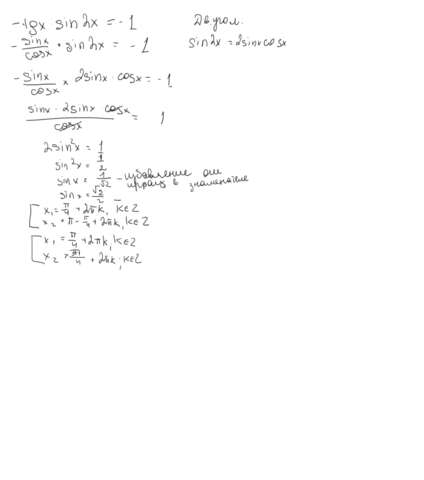 -tgx sin2x = -1
Дв. угол.
- sinx/cosx · sin2x = -1
sin2x = 2sinx cosx
- sinx/cosx × 2sinx · cosx = -1
sinx · 2sinx cosx / cosx = 1
2sin²x = 1
sin²x = 1/2
sinx = 1/√2 - избавление от
иррац в знаменателе
sinx = √2/2
x₁ = π/4 + 2πk, k∈Z
x₂ = π - π/4 + 2πk, k∈Z
x₁ = π/4 + 2πk, k∈Z
x₂ = 3π/4 + 2πk, k∈Z